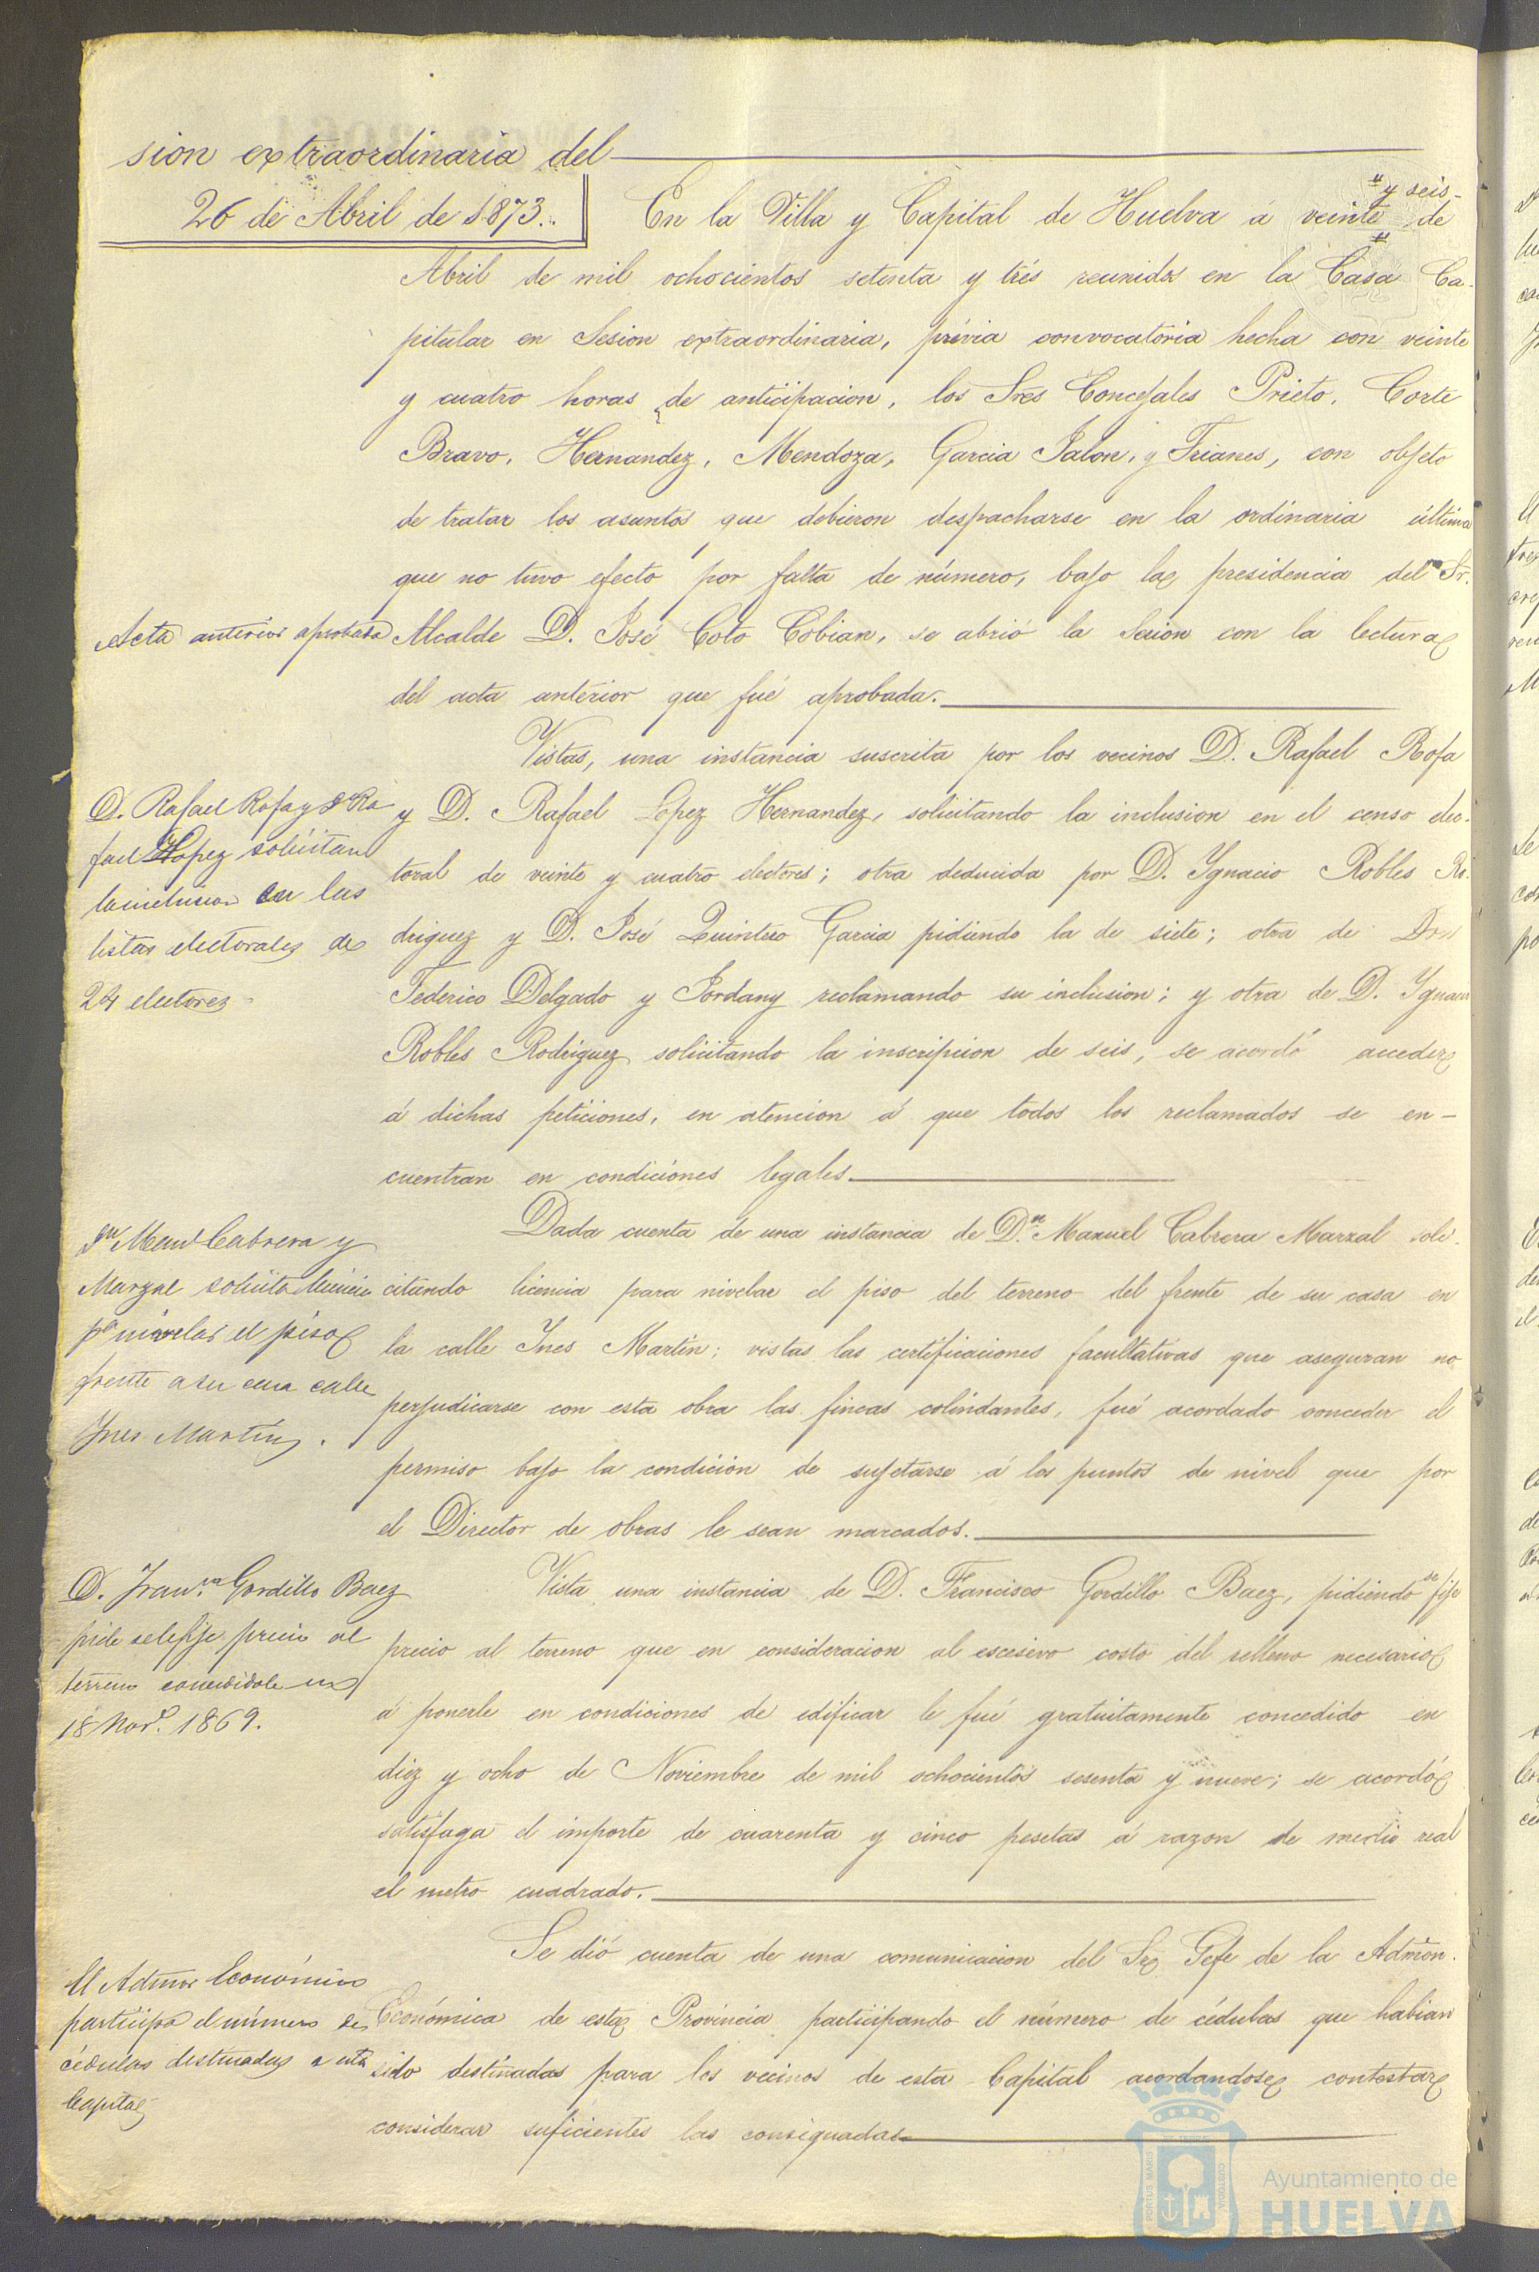 sion extraordinaria del
26 de Abril de 1873..
En la Villa y Capital de Huelva á veinte y seis de
Abril de mil ochocientos setenta y trés reunidos en la Casa Ca-
pitular en Sesion extraordinaria, prévia convocatória hecha con veinte
y cuatro horas de anticipacion, los Sres Concejales Prieto, Corte
Bravo, Hernandez, Mendoza, Garcia Jalon, y Trianes, con objeto
de tratar los asuntos que debieron despacharse en la ordinaria última
que no tuvo efecto por falta de número, bajo la presidencia del Sr.
Acta anterior aprobada
Alcalde D. José Coto Cobian, se abrió la Sesion con la lectura
del acta anterior que fué aprobada.
Vistas, una instancia suscrita por los vecinos D. Rafael Rofa
D. Rafael Rofa y D Ra
fael Lopez solicitan
la inclusion en las
listas electorales de
24 electores
y D. Rafael Lopez Hernandez, solicitando la inclusion en el censo elec-
toral de veinte y cuatro electores; otra deducida por D. Ygnacio Robles Ro-
driguez y D. José Quintero Garcia pidiendo la de siete; otra de Don
Federico Delgado y Jordany reclamando su inclusion; y otra de D. Ygnacio
Robles Rodriguez solicitando la inscripcion de seis, se acordó acceder
á dichas peticiones, en atencion á que todos los reclamados se en-
cuentran en condiciones legales.
Dada cuenta de una instancia de Dn. Manuel Cabrera Marzal soli-
Dn Manl Cabrera y
Marzal solicita licencia
pa nivelar el piso
frente a su casa calle
Ynes Martin.
citando licencia para nivelar el piso del terreno del frente de su casa en
la calle Ynes Martin; vistas las certificaciones facultativas que aseguran no
perjudicarse con esta obra las fincas colindantes, fué acordado conceder el
permiso bajo la condicion de sujetarse á los puntos de nivel que por
el Director de obras le sean marcados.
Vista una instancia de D. Francisco Gordillo Baez, pidiendo se fije
D. Franco Gordillo Baez
pide se le fije precio al
terreno concedidole en
18 Nove. 1869.
precio al terreno que en consideracion al escesivo costo del relleno necesario
á ponerle en condiciones de edificar le fué gratuitamente concedido en
diez y ocho de Noviembre de mil ochocientos sesenta y nueve; se acordó
satisfaga el importe de cuarenta y cinco pesetas á razon de medio real
el metro cuadrado.
Se dió cuenta de una comunicacion del Sr Gefe de la Admon.
El Admor Económico
participa el número de
cédulas destinadas a esta
Capital
Económica de esta Provincia participando el número de cédulas que habian
sido destinadas para los vecinos de esta Capital acordandose contestar
considerar suficientes las consignadas
PORTUS MARIS
CUSTODIA
Ayuntamiento de
HUELVA